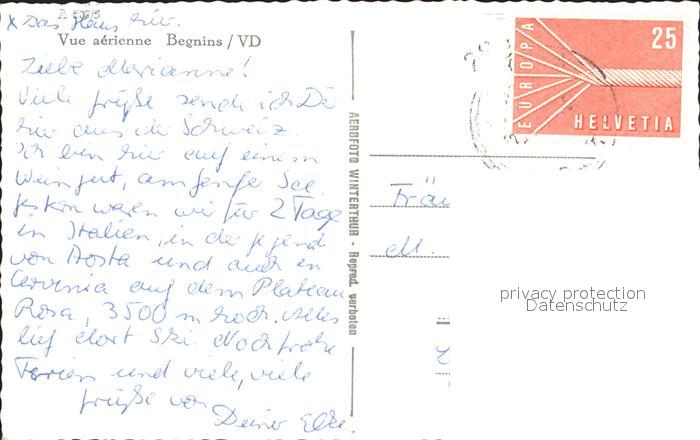 x Das Haus hier.
Vue aérienne Begnins / VD
Liebe Marianne!
Viele Grüße sende ich Dir
hier aus der Schweiz.
Ich bin hier auf einem
Weingut, am Genfer See.
Gestern waren wir für 2 Tage
in Italien, in der Gegend
von Aosta und auch in
Cervinia auf dem Plateau
Rosa, 3500 m hoch. Alles
lief dort Ski. Noch frohe
Ferien und viele, viele
Grüße von
Deiner Elke.
AEROFOTO WINTERTHUR - Reprod. verboten
EUROPA
25
HELVETIA
Fräu
M.
privacy protection
Datenschutz